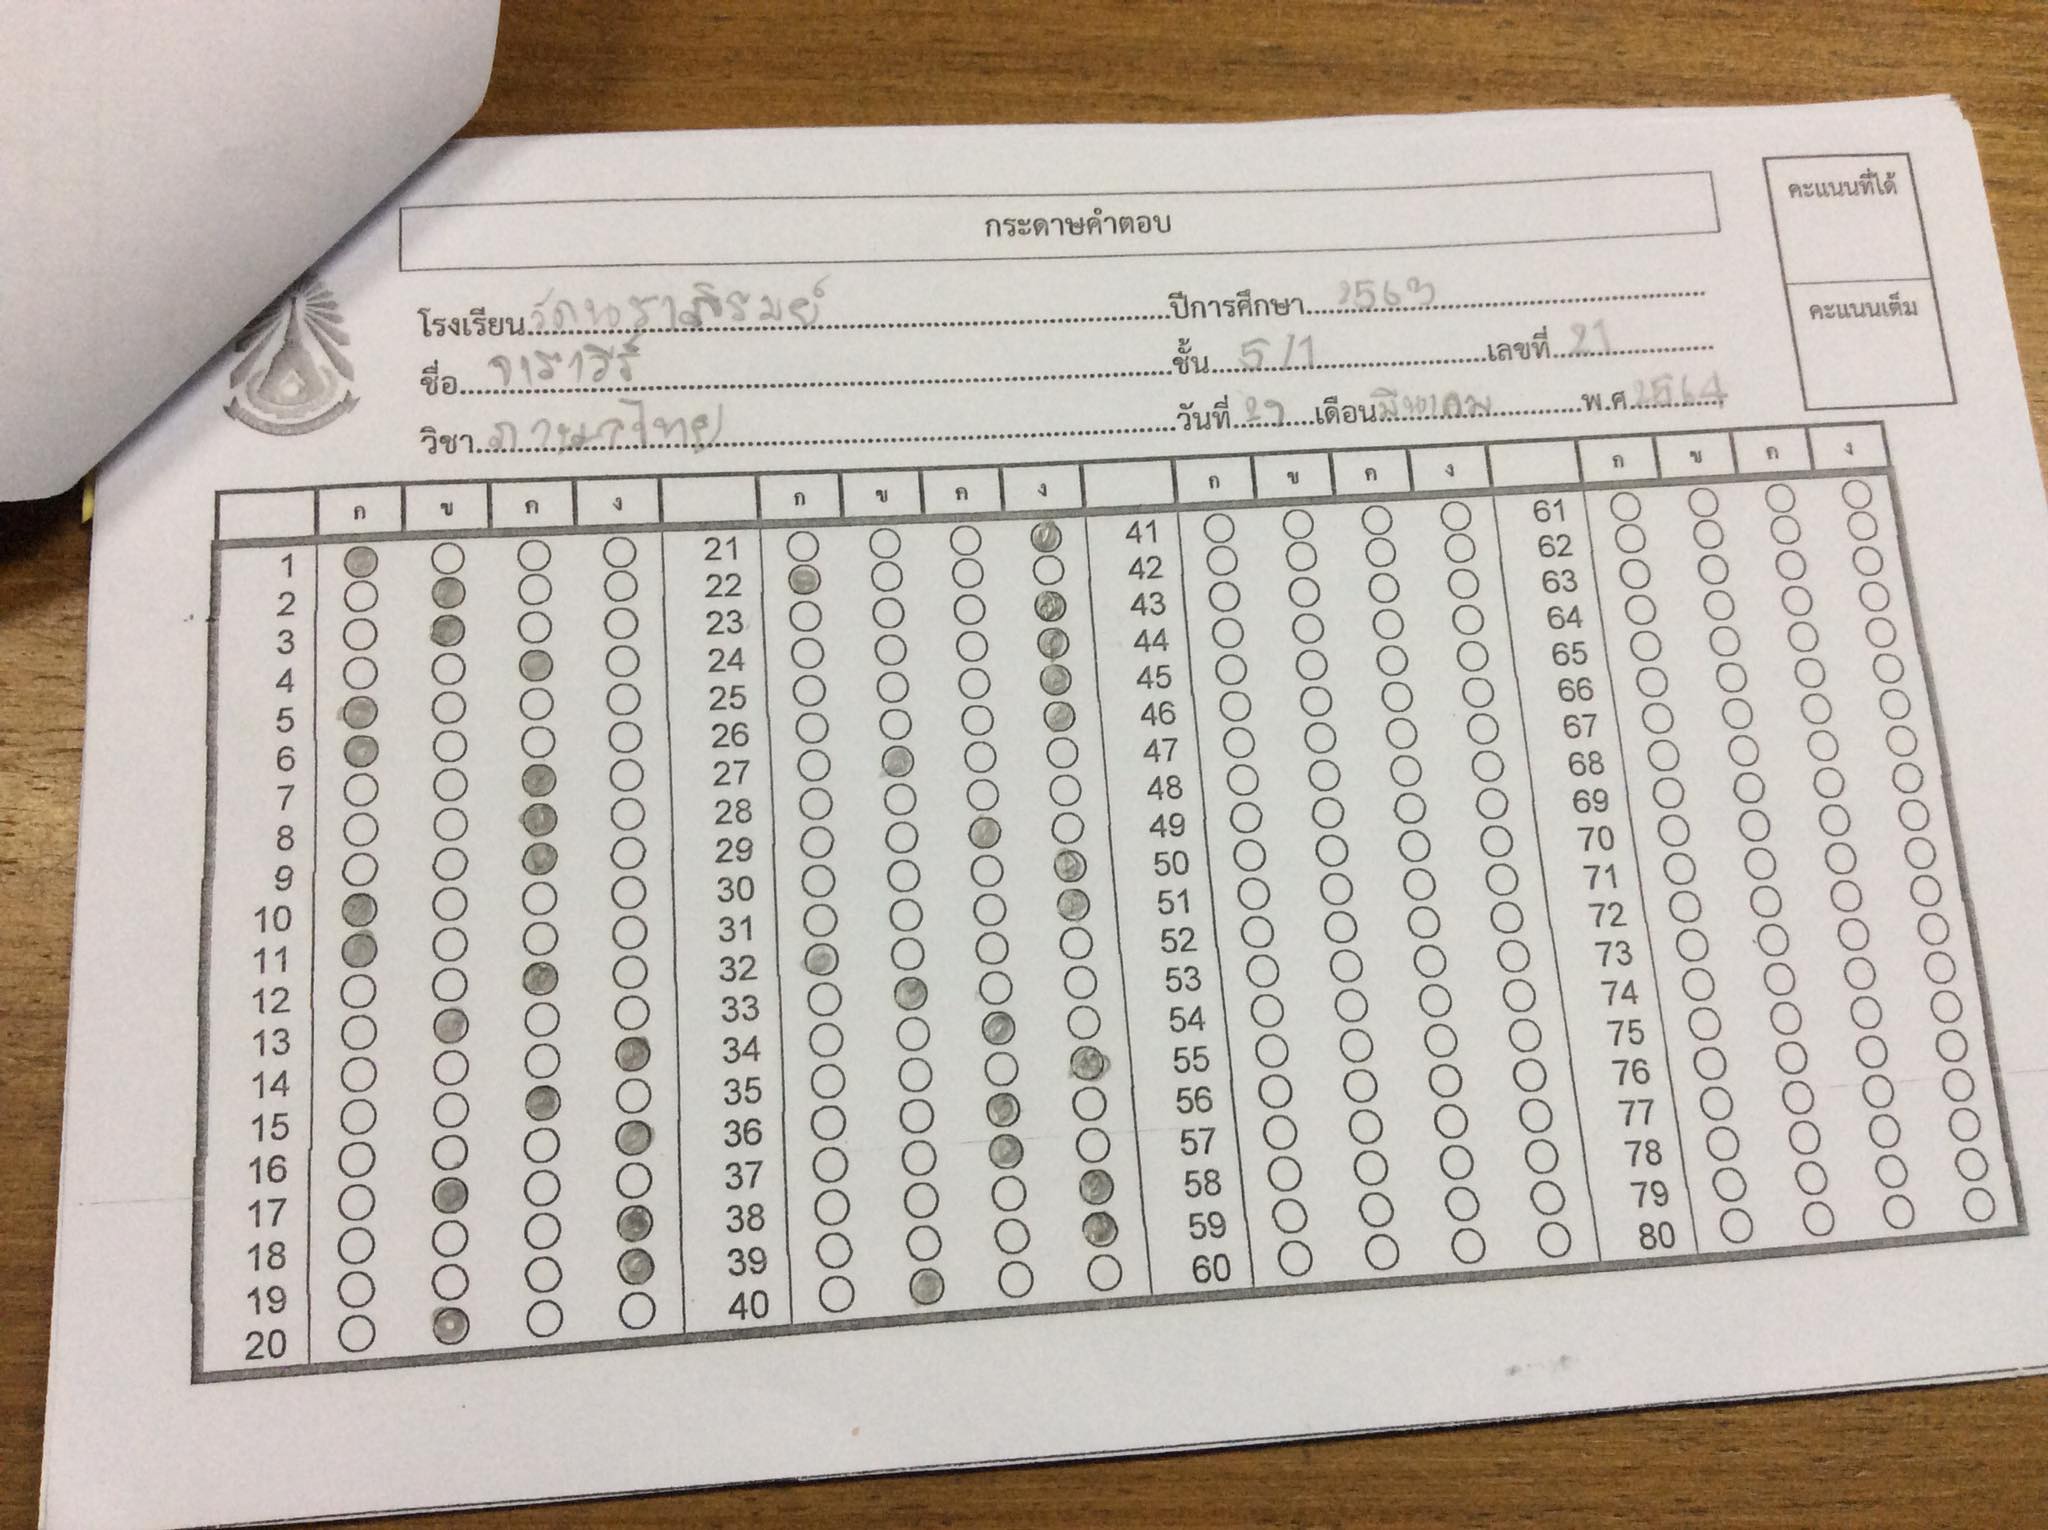 กระดาษคำตอบ
คะแนนที่ได้
คะแนนเต็ม
โรงเรียน วัดนราภิรมย์ ปีการศึกษา 2563
ชื่อ จารวีร์ ชั้น 5/1 เลขที่ 21
วิชา ภาษาไทย วันที่ 29 เดือน มีนาคม พ.ศ. 2564
ก ข ค ง ก ข ค ง ก ข ค ง ก ข ค ง
1 21 41 61
2 22 42 62
3 23 43 63
4 24 44 64
5 25 45 65
6 26 46 66
7 27 47 67
8 28 48 68
9 29 49 69
10 30 50 70
11 31 51 71
12 32 52 72
13 33 53 73
14 34 54 74
15 35 55 75
16 36 56 76
17 37 57 77
18 38 58 78
19 39 59 79
20 40 60 80